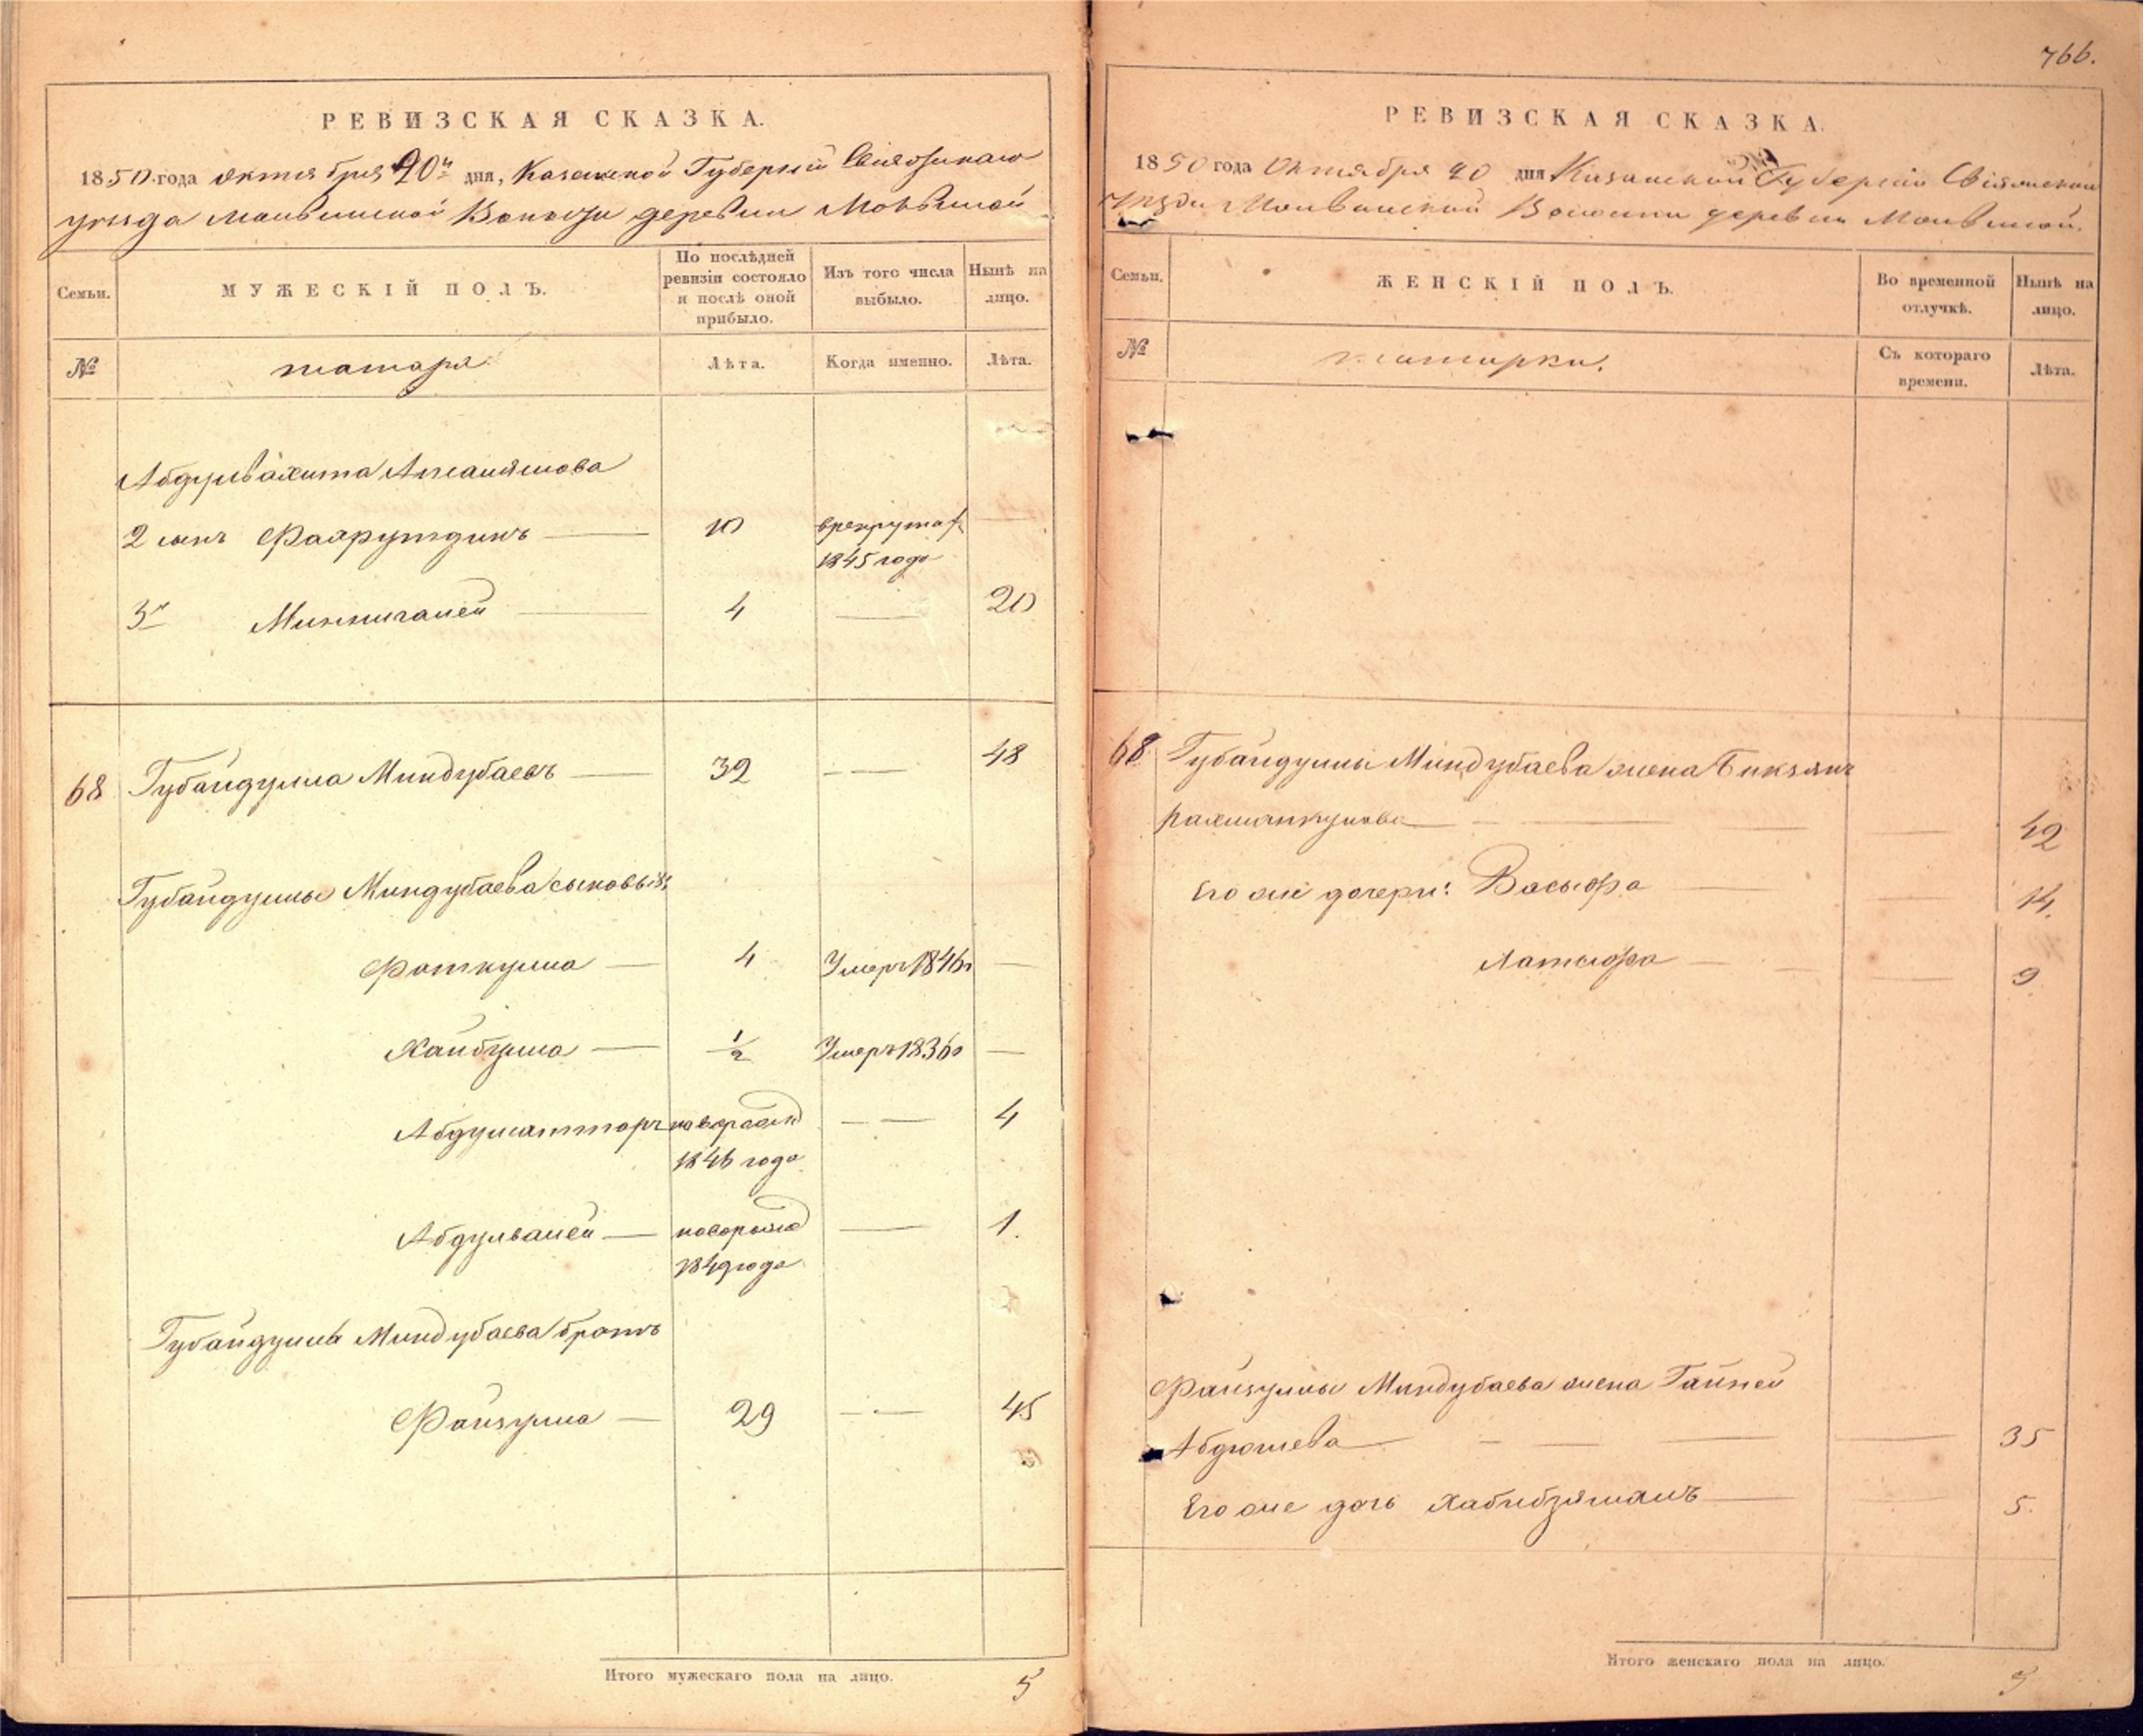 РЕВИЗСКАЯ СКАЗКА.
1850 года октября 20го дня, Казанской Губернiи Свiяжскаго
уезда Молвинской Волости деревни Молвиной
Семьи.
МУЖЕСКІЙ ПОЛЪ.
По послѣдней ревизіи состояло и послѣ оной прибыло.
Изъ того числа выбыло.
Нынѣ на лицо.
№
татара
Лѣта.
Когда именно.
Лѣта.
Абдулвахита
2 сынъ Фахрутдинъ 10 в рекрутах
1845 года
3й Миннигалей 4 20
68 Губайдулла Миндубаевъ 32 48
Губайдуллы Миндубаева сыновья:
Фаткулла 4 Умеръ 1846г
Хайбулла 1/2 Умеръ 1836г
Абдулсатторъ новорожд 4
1846 года
Абдулвалей новорожд 1.
1849 года
Губайдуллы Миндубаева братъ
Файзулла 29 45
Итого мужескаго пола на лицо. 5
766.
РЕВИЗСКАЯ СКАЗКА.
1850 года Октября 20 дня Казанской Губернiи Свiяжской
Уезда Молвинской Волости деревни Молвиной.
Семьи.
ЖЕНСКІЙ ПОЛЪ.
Во временной отлучкѣ.
Нынѣ на лицо.
№
татарки.
Съ котораго времени.
Лѣта.
68. Губайдуллы Миндубаева жена Бикзянъ
Рахманкулова 42
Его же дочери: Васыфа 14.
Латыфа 9
Файзуллы Миндубаева жена Гайней
Абдюшева 35
Его же дочь Хабибзямалъ 5.
Итого женскаго пола на лицо. 5